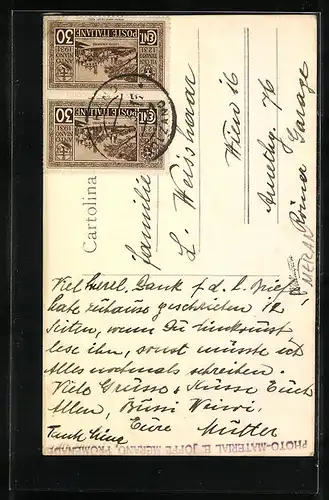 CENT 30
POSTE ITALIANE
CENT 30
POSTE ITALIANE
Cartolina
Familie
L. Weissherar
Wien 16
76
Römer Garage
MERAN
Viel herzl. Dank f. d. l. Brief
habe zuhause geschrieben 12
Seiten, wenn Du hinkommst
lese ihn, sonst müsste ich
Alles nochmals schreiben.
Viele Grüsse & Küsse Euch
Allen, Bussi
Eure Mutter
Tante
PHOTO-MATERIAL E. JOFFE MERANO, PROMENADE